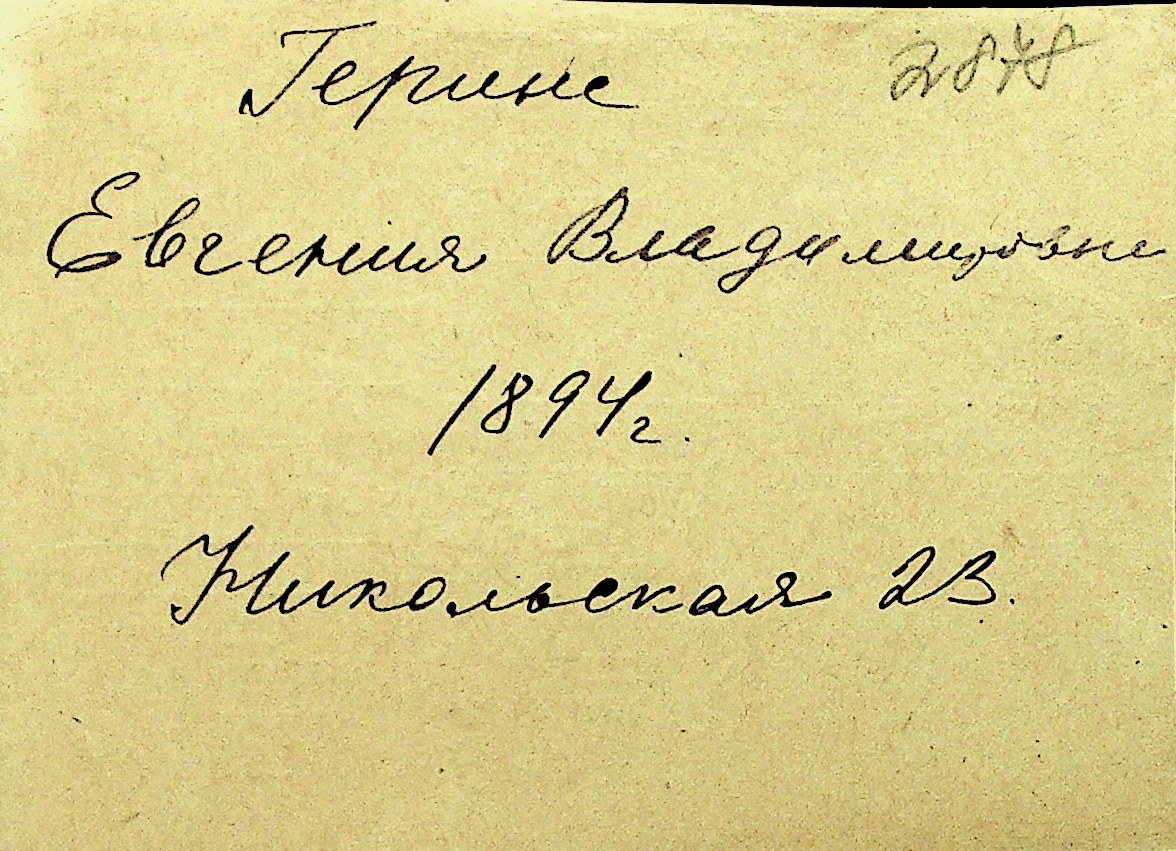 Геринс 2878
Евгения Владимировне
1894г.
Никольская 23.